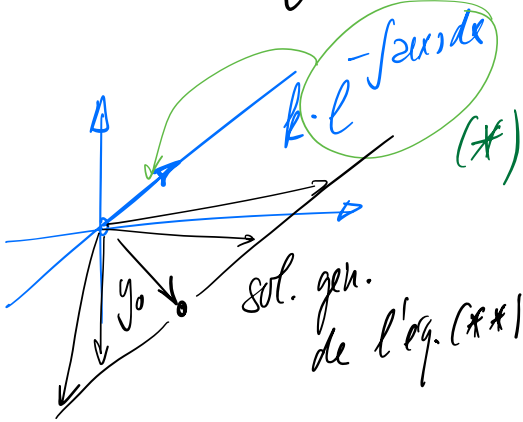 k · e^{-∫a(x)dx}
(*)
y₀
sol. gén.
de l'éq. (**)